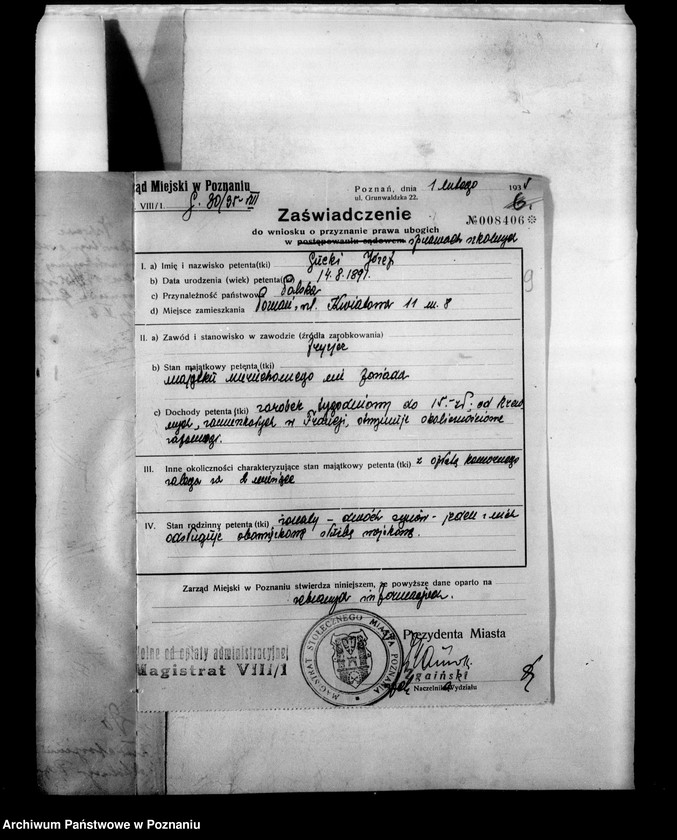 ąd Miejski w Poznaniu
VIII/1. G. 30/35-VIII
Poznań, dnia 1 lutego 1935
ul. Grunwaldzka 22.
6.
Zaświadczenie
№ 008406
do wniosku o przyznanie prawa ubogich
w postępowaniu sądowem sprawach szkolnych
9
I. a) Imię i nazwisko petenta(tki) Józef
b) Data urodzenia (wiek) petenta(tki) 14.8.1891.
c) Przynależność państwowa Polska
d) Miejsce zamieszkania Poznań, ul. Kwiatowa 11 m. 8
II. a) Zawód i stanowisko w zawodzie (źródła zarobkowania)
fryzjer
b) Stan majątkowy petenta (tki)
majątku nieruchomego nie posiada
c) Dochody petenta (tki) zarobek tygodniowy do 15.- zł; od
zamieszkałych w Francji, otrzymuje okolicznościowe
zapomogi.
III. Inne okoliczności charakteryzujące stan majątkowy petenta (tki) z opłatą komornego
zalega za 2 miesiące
IV. Stan rodzinny petenta (tki) żonaty – dwóch synów – jeden z nich
odsługuje obowiązkową służbę wojskową.
Zarząd Miejski w Poznaniu stwierdza niniejszem, że powyższe dane oparto na
zebranych informacjach.
Prezydenta Miasta
olne od opłaty administracyjnej
Magistrat VIII/1
MAGISTRAT STOŁECZNEGO MIASTA POZNANIA
Naczelnik Wydziału
Archiwum Państwowe w Poznaniu